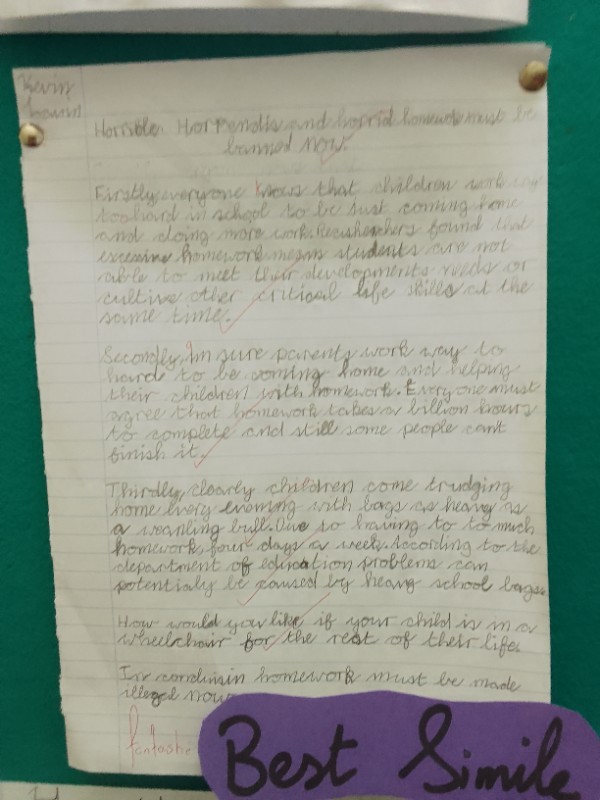 Kevin
Horrible Horrendis and horrid homework must be
banned now.
Firstly, everyone knows that children work way
too hard in school to be just coming home
and doing more work. Reasheachers found that
excessive homework mean students are not
able to meet their developments needs or
cultive other critical life skills at the
same time.
Secondly, Im sure parents work way to
hard to be coming home and helping
their children with homework. Everyone must
agree that homework takes a billion hours
to complete and still some people cant
finish it.
Thirdly, clearly children come trudging
home every evening with bags as heavy as
a weanling bull. Due to having to to much
homework four days a week. According to the
department of education problems can
potentialy be caused by heavy school bags.
How would you like if your child is in a
wheelchair for the rest of their life.
In homework must be made
illegal now
fantastic
Best Simile